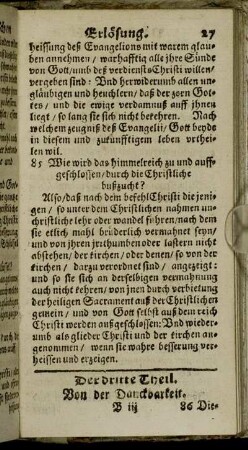 Erlösung. 27
heissung deß Evangelions mit warem glau-
ben annehmen / warhafftig alle jhre Sünde
von Gott / umb deß verdiensts Christi willen /
vergeben sind: Und herwiderumb allen un-
gläubigen und heuchlern / daß der zorn Got-
tes / und die ewige verdamnuß auff jhnen
ligt / so lang sie sich nicht bekehren. Nach
welchem zeugniß deß Evangelii / Gott beyde
in diesem und zukünfftigem leben vrtheilen
wil.
85 Wie wird das himmelreich zu und auff-
geschlossen / durch die Christliche
bußzucht?
Also / daß nach dem befehl Christi die jeni-
gen / so unter dem Christlichen nahmen un-
christliche lehr oder wandel führen / nach dem
sie etlich mahl brüderlich vermahnet seyn /
und von jhren jrrthumben oder lastern nicht
abstehen / der kirchen / oder denen / so von der
kirchen / darzu verordnet sind / angezeigt:
und so sie sich an derselbigen vermahnung
auch nicht kehren / von jnen durch verbietung
der heiligen Sacrament auß der Christlichen
gemein / und von Gott selbst auß dem reich
Christi werden außgeschlossen: Und wieder-
umb als glieder Christi und der kirchen an-
genommen / wenn sie wahre besserung ver-
heissen und erzeigen.
Der dritte Theil.
Von der Danckbarkeit.
B iij 86 Die-